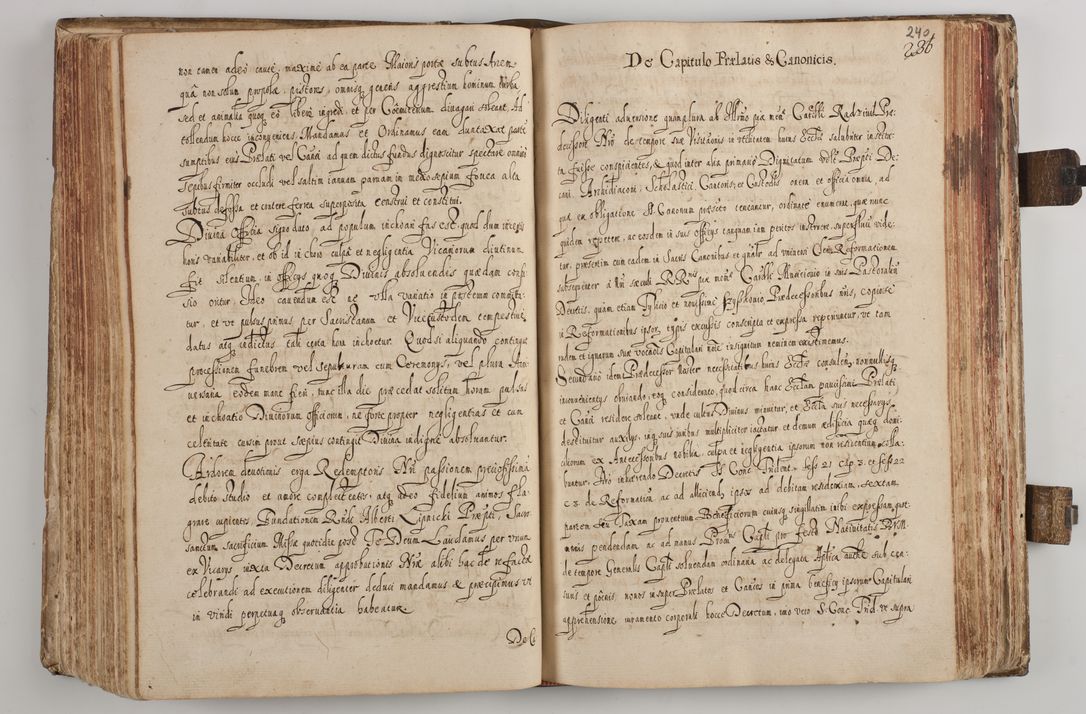 non tamen adeo caute, maxime ab ea parte Maioris portæ subtus Arcem
quâ non solum propolæ, pistores, omnisq generis agrestium hominum turba
sed et animalia quoq eo libere ingredi, et per Cœmiterium divagari soleant. Ad
tollendum hocce incongruens, Mandamus et Ordinamus eam duntaxat parte
sumptibus eius Prælati vel Canci ad quem dictus fundus dignoscitur spectare omnino
sepibus firmiter occludi vel saltim ianuam parvam in medio sepium fovea alta
subtus defossa et cratere ferrea superposita construi et constitui.
Divina Officia signo dato, ad populum inchoari fas est, quod dum interdũ
horis variabiliter, et ob id in choro culpâ et negligentia Vicariorum diutinum
fit silentium, in officys quoq Divinis absolvendis quædam confu-
sio oritur, Ideo cavendum est ne ulla variatio in posterum committa-
tur, et ut pulsus primus per Sacristianum et Vicecustodem tempestive
datus atq indictus tali certa hora inchoetur. Quod si aliquando contingat
processionem funebrem vel sepulturam cum Ceremonys vel plura Anni-
versaria eodem mane fieri, tunc illa dic præcedat solitum horam pulsus
et inchoatio Divinorum officiorum, ne forte propter negligentias et cum
celeritate cursim prout sæpius contingit Divina indigne absolvantur.
Ardorem devotionis erga Redemptoris Nri passionem preciosissimã
debito studio et amore complectentes, atq adeo fidelium animos fla-
grare cupientes, Fundationem Rndi Alberti Lipnicki Præpti, Sacro
sanctum sacrificium Missæ quotidie post Te Deum Laudamus per unum
ex Vicarys iuxta Decretum approbationis Nræ alibi hac de re factæ
celebrandi ad executionem diligenter deduci mandamus & præcipimus ut
in viridi perpetuaq observantia habeatur.
De Ca
240
236
De Capitulo Prælatis & Canonicis.
Diligenti adversione quamplura ab Illmo piæ mem: Cardli Radziuil Præ-
decessore Nro de tempore suæ Visitationis in utilitatem huius Ecclæ salubriter institu-
ta fuisse conspicientes, & quod inter alia primario Dignitatum
cani, Archidiaconi, Scholastici, Cantoris, et Custodis onera et officia omnia ad
quæ ex obligatione S. Canonum præscripto teneantur, ordinate enumerat, quæ nunc
quidem repetere, ac eosdem in suis officys tanquam iam peritos instruere, superfluũ vide-
tur, præsertim cum eadem in Sacris Canonibus, et
subsequenter â Nri sæculi RRmis piæ mem: Cardli Maciejovio in suis Pastoralibũ
Decretis, quam etiam Tylicio et novissimi Szyszkovio Prædecessoribus nris, copiose
in Reformationibus ipsor typis excussis conscripta et expressa reperiuntur, ut tam
rudem et ignarum suæ vocaois Capitulari nõie insignitum neminem existimemus.
Secundario idem Prædecessor Noster necessitatibus huius Ecclæ consulens, nonnullisq
inconvenientys obviando, eoq considerato, quod circa hanc Ecclam paucissimi Prælati
et Canci residere soleant, unde cultus Divinus minuitur, et Eccla suis necessarys
destituitur auxilys, inq suis iuribus multipliciter iactatur et demum ædificia quæq domi-
ciliorum ex Antecessoribus nobilia, culpa et negligentia ipsorum non residentium colla-
buntur. Nos inhærendo Decretis S. Conc: Trident: Sess 21 cap 3. et sess 22
c 3. de Reformation: ac ad alliciend: ipsos ad debitam residentiam, sextam
partem seu Taxam proventuum Beneficiorum cuiusq singillatim inibi expressam quot
annis pendendam ac ad manus Procuris Capli pro Festo Nativitatis BVM
de tempore Generalis Capli solvendam ordinaria ac delegata Aplica authte sub cen-
suris et pœnis, nonos insuper Prælatos et Cancos in prima beneficy ipsorum Capitulari
apprehensione, iuramento corporali hocce Decretum, imo vero S. Conc: Trid: ut supra